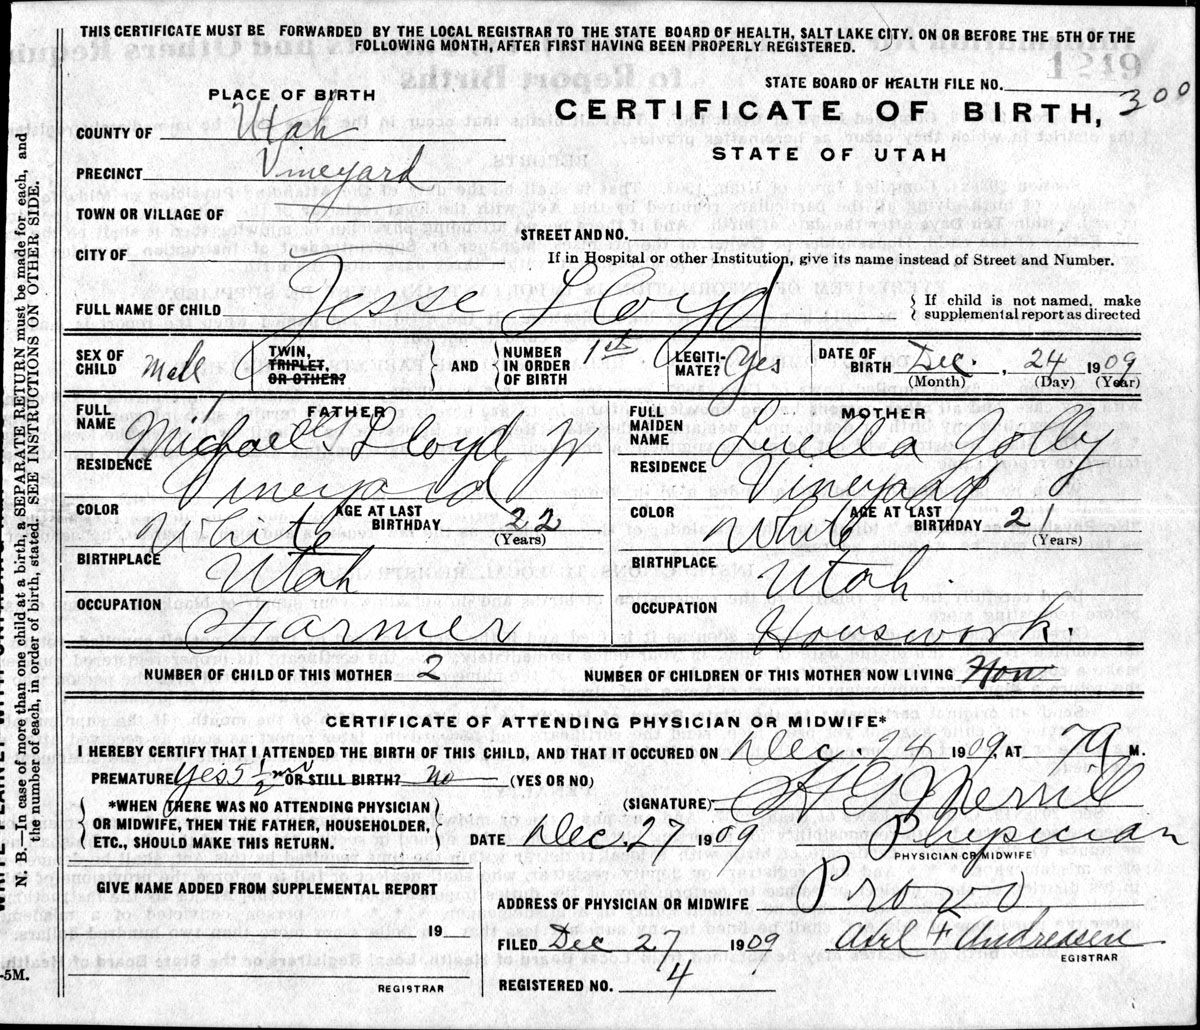 THIS CERTIFICATE MUST BE FORWARDED BY THE LOCAL REGISTRAR TO THE STATE BOARD OF HEALTH, SALT LAKE CITY. ON OR BEFORE THE 5TH OF THE
FOLLOWING MONTH, AFTER FIRST HAVING BEEN PROPERLY REGISTERED.
STATE BOARD OF HEALTH FILE NO. 300
PLACE OF BIRTH
CERTIFICATE OF BIRTH,
STATE OF UTAH
COUNTY OF Utah
PRECINCT Vineyard
TOWN OR VILLAGE OF
STREET AND NO.
CITY OF
If in Hospital or other Institution, give its name instead of Street and Number.
FULL NAME OF CHILD Jesse Lloyd
{ If child is not named, make
{ supplemental report as directed
SEX OF CHILD Male
TWIN, TRIPLET, OR OTHER? } AND { NUMBER IN ORDER OF BIRTH 1st
LEGITIMATE? Yes
DATE OF BIRTH Dec. , 24 1909
(Month) (Day) (Year)
FATHER
FULL NAME Michael Lloyd Jr
RESIDENCE Vineyard
COLOR White AGE AT LAST BIRTHDAY 22
(Years)
BIRTHPLACE Utah
OCCUPATION Farmer
MOTHER
FULL MAIDEN NAME Luella
RESIDENCE Vineyard
COLOR White AGE AT LAST BIRTHDAY 2
(Years)
BIRTHPLACE Utah.
OCCUPATION Housework.
NUMBER OF CHILD OF THIS MOTHER 2
NUMBER OF CHILDREN OF THIS MOTHER NOW LIVING
CERTIFICATE OF ATTENDING PHYSICIAN OR MIDWIFE*
I HEREBY CERTIFY THAT I ATTENDED THE BIRTH OF THIS CHILD, AND THAT IT OCCURED ON Dec. 24 1909, AT 7 A M.
PREMATURE Yes 5 1/2 mo OR STILL BIRTH? no (YES OR NO)
(SIGNATURE) Merrill
*WHEN THERE WAS NO ATTENDING PHYSICIAN
OR MIDWIFE, THEN THE FATHER, HOUSEHOLDER,
ETC., SHOULD MAKE THIS RETURN.
DATE Dec. 27 1909
Physician
PHYSICIAN OR MIDWIFE
GIVE NAME ADDED FROM SUPPLEMENTAL REPORT
19
REGISTRAR
ADDRESS OF PHYSICIAN OR MIDWIFE Provo
FILED Dec 27 1909 Axel F Andreasen
EGISTRAR
REGISTERED NO. 4
N. B.—In case of more than one child at a birth, a SEPARATE RETURN must be made for each, and
the number of each, in order of birth, stated. SEE INSTRUCTIONS ON OTHER SIDE.
-5M.